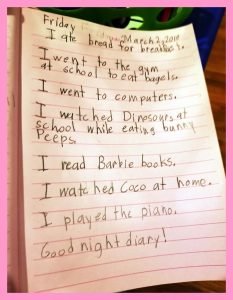 Friday March 2, 2018
I ate bread for breakfast.
I went to the gym
at school to eat bagels.
I went to computers.
I watched Dinosours at
school while eating bunny
Peeps.
I read Barbie books.
I watched Coco at home.
I played the piano.
Good night diary!